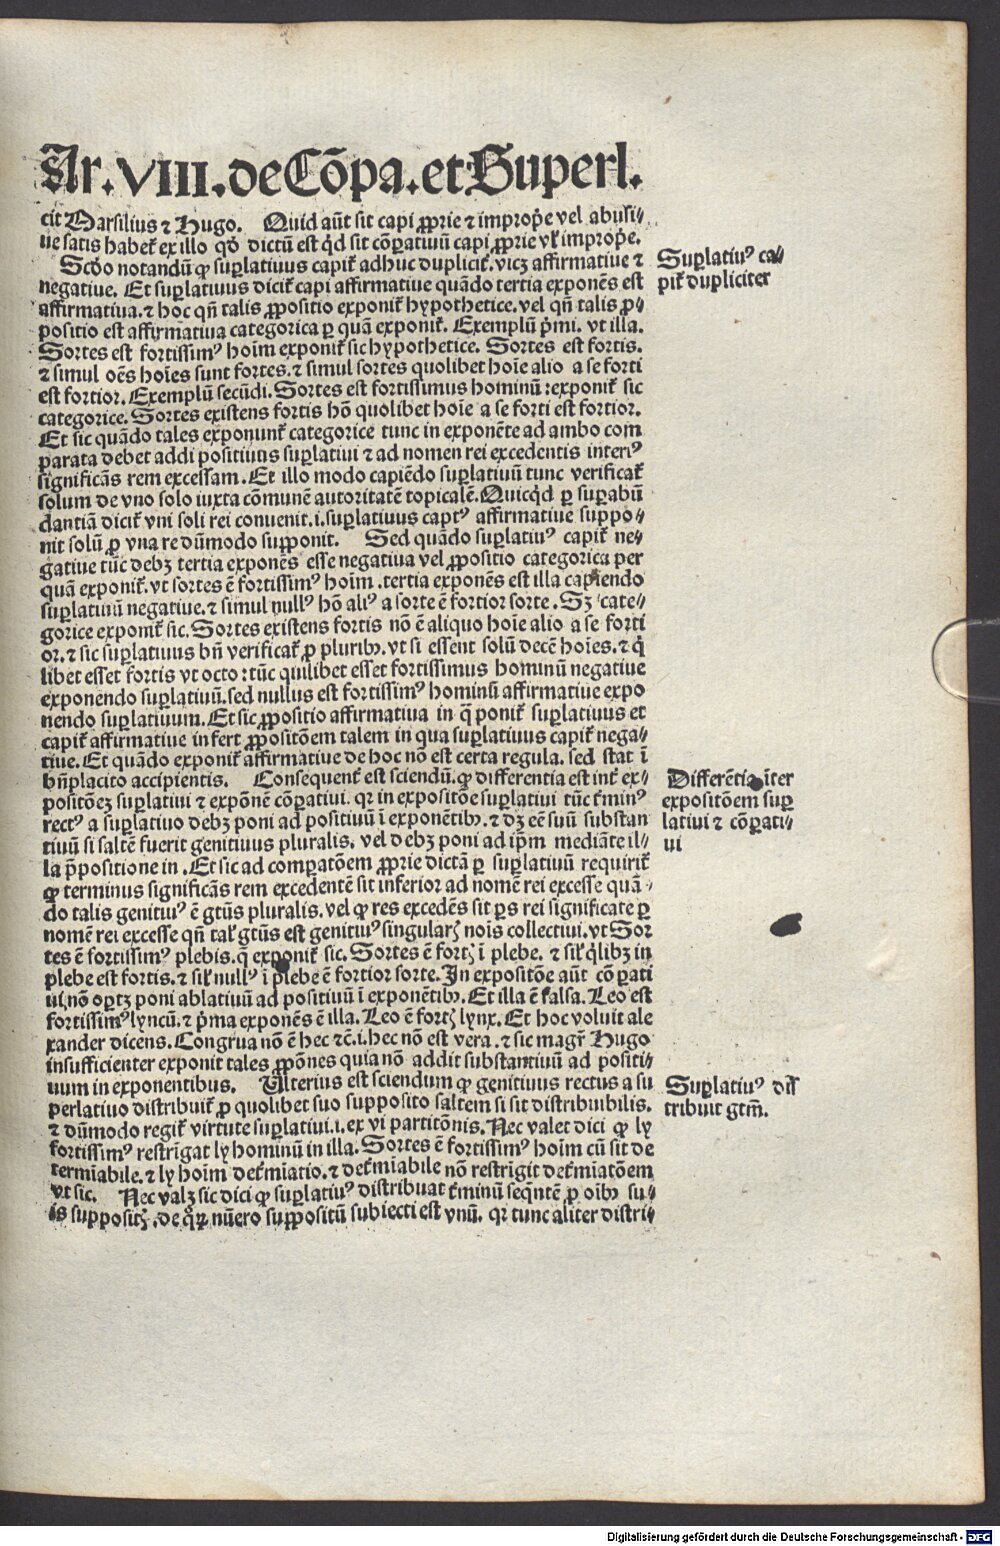 Ar. VIII. de Cõpa. et Superl.
cit Marsilius ⁊ Hugo. Quid aũt sit capi ꝓprie ⁊ improṗe vel abusi⸗
ue satis habet̃ ex illo qđ dictũ est qđ sit cõꝑatiuũ capi ꝓprie vł improṗe.
Scđo notandũ ꝙ suꝑlatiuus capit̃ adhuc duplicit̃. vicꝫ affirmatiue ⁊
negatiue. Et suꝑlatiuus dicit̃ capi affirmatiue quãdo tertia exponẽs est
affirmatiua. ⁊ hoc qñ talis ꝓpositio exponit̃ hypothetice. vel qñ talis ꝓ⸗
positio est affirmatiua categorica ꝑ quã exponit̃. Exemplũ p̃mi. vt illa.
Sortes est fortissimꝰ hoĩm exponit̃ sic hypothetice. Sortes est fortis.
⁊ simul oẽs hoĩes sunt fortes. ⁊ simul sortes quolibet hoĩe alio a se forti
est fortior. Exemplũ secũdi. Sortes est fortissimus hominũ : exponit̃ sic
categorice. Sortes existens fortis hõ quolibet hoĩe a se forti est fortior.
Et sic quãdo tales exponunt̃ categorice tunc in exponẽte ad ambo com
parata debet addi positiuus suꝑlatiui ⁊ ad nomen rei excedentis interiꝰ
significãs rem excessam. Et illo modo capiẽdo suꝑlatiuũ tunc verificat̃
solum de vno solo iuxta cõmunẽ autoritatẽ topicalẽ. Quicq̃d ꝑ suꝑabũ
dantiã dicit̃ vni soli rei conuenit. i. suꝑlatiuus captꝰ affirmatiue suppo⸗
nit solũ ꝑ vna re dũmodo supponit. Sed quãdo suꝑlatiuꝰ capit̃ ne⸗
gatiue tũc debꝫ tertia exponẽs esse negatiua vel ꝓpositio categorica per
quã exponit̃. vt sortes ẽ fortissimꝰ hoĩm . tertia exponẽs est illa capiendo
suꝑlatiuũ negatiue. ⁊ simul nullꝰ hõ aliꝰ a sorte ẽ fortior sorte . Sꝫ cate⸗
gorice exponit̃ sic. Sortes existens fortis nõ ẽ aliquo hoĩe alio a se forti
or. ⁊ sic suꝑlatiuus bñ verificat̃ ꝓ pluribꝰ. vt si essent solũ decẽ hoĩes. ⁊ q̃
libet esset fortis vt octo : tũc quilibet esset fortissimus hominũ negatiue
exponendo suꝑlatiuũ. sed nullus est fortissimꝰ hominũ affirmatiue expo
nendo suꝑlatiuum. Et sic ꝓpositio affirmatiua in q̃ ponit̃ suꝑlatiuus et
capit̃ affirmatiue infert ꝓpositõem talem in qua suꝑlatiuus capit̃ nega⸗
tiue. Et quãdo exponit̃ affirmatiue de hoc nõ est certa regula. sed stat ĩ
bñplacito accipientis. Consequent̃ est sciendũ. ꝙ differentia est int̃ ex⸗
positõeꝫ suꝑlatiui ⁊ exponẽ cõꝑatiui. qꝛ in expositõe suꝑlatiui tũc t̃minꝰ
rectꝰ a suꝑlatiuo debꝫ poni ad positiuũ ĩ exponẽtibꝰ. ⁊ dꝫ eẽ suũ substan
tiuũ si saltẽ fuerit genitiuus pluralis. vel debꝫ poni ad ip̃m mediãte il⸗
la p̃positione in . Et sic ad comꝑatõem ꝓprie dictã ꝑ suꝑlatiuũ requirit̃
ꝙ terminus significãs rem excedentẽ sit inferior ad nomẽ rei excesse quã⸗
do talis genitiuꝰ ẽ gtũs pluralis. vel ꝙ res excedẽs sit ꝑs rei significate ꝑ
nomẽ rei excesse qñ tal̃ gtũs est genitiuꝰ singularꝭ noĩs collectiui. vt Sor
tes ẽ fortissimꝰ plebis. q̃ exponit̃ sic. Sortes ẽ fortꝭ ĩ plebe. ⁊ sil̃ q̃libꝫ in
plebe est fortis. ⁊ sil̃ nullꝰ ĩ plebe ẽ fortior sorte. In expositõe aũt cõꝑati
ui nõ oꝑtꝫ poni ablatiuũ ad positiuũ ĩ exponẽtibꝰ. Et illa ẽ falsa. Leo est
fortissimꝰ lyncũ. ⁊ p̃ma exponẽs ẽ illa. Leo ẽ fortꝭ lynx. Et hoc voluit ale
xander dicens. Congrua nõ ẽ hec ⁊c̃. i. hec nõ est vera . ⁊ sic magr̃ Hugo
insufficienter exponit tales ꝓpõnes quia nõ addit substantiuũ ad positi⸗
uum in exponentibus. Ulterius est sciendum ꝙ genitiuus rectus a su
perlatiuo distribuit̃ ꝓ quolibet suo supposito saltem si sit distribuibilis.
⁊ dũmodo regit̃ virtute suꝑlatiui. i. ex vi partitõnis. Nec valet dici ꝙ ly
fortissimꝰ restrĩgat ly hominũ in illa. Sortes ẽ fortissimꝰ hoĩm cũ sit de
termĩabile. ⁊ ly hoĩm det̃mĩatio. ⁊ det̃mĩabile nõ restrĩgit det̃mĩatõem
vt sic. Nec valꝫ sic dici ꝙ suꝑlatiuꝰ distribuat t̃minũ seq̃ntẽ ꝓ oĩbꝰ su⸗
is suppositꝭ . de qꝝ nũero suppositũ subiecti est vnũ. qꝛ tunc aliter distri⸗
Suꝑlatiuꝰ ca⸗
pit̃ dupliciter
Differẽtia ĩter
expositõem suꝑ
latiui ⁊ cõꝑati⸗
ui
Suꝑlatiuꝰ dis
tribuit gtm̃.
Digitalisierung gefördert durch die Deutsche Forschungsgemeinschaft - DFG